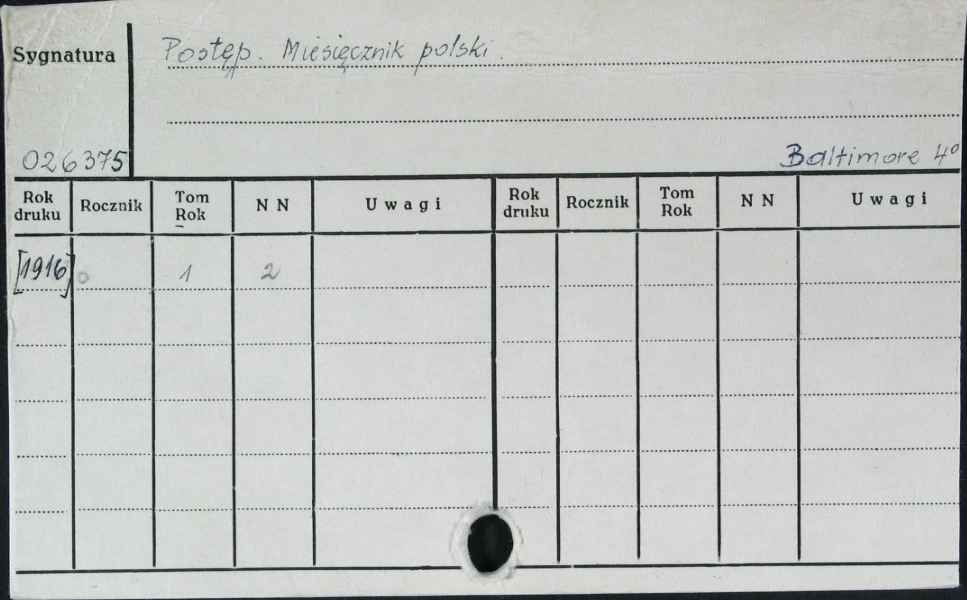 Sygnatura
Postęp. Miesięcznik polski.
026375
Baltimore 4°
Rok druku Rocznik Tom Rok N N Uwagi Rok druku Rocznik Tom Rok N N Uwagi
[1916] 0 1 2